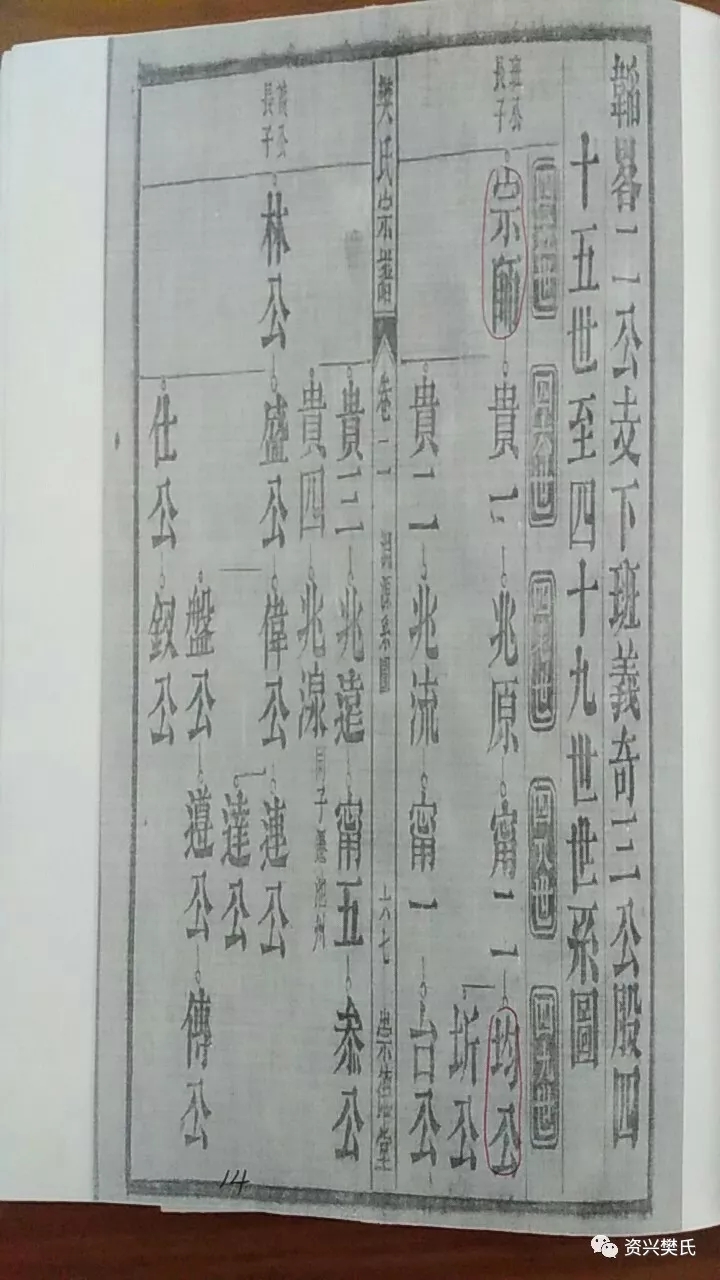 韜畧二公支下班義奇三公股四
十五世至四十九世世系圖
四十五世
四十六世
四十七世
四十八世
四十九世
班公長子
崇師
貴一
兆原
甯二
均公
圻公
貴二
兆流
甯一
台公
樊氏宗譜
卷二
淵源系圖
六七
崇德堂
貴三
兆遠
甯五
叅公
貴四
兆湶
長子
林公
盛公
偉公
連公
達公
盤公
遵公
傳公
仕公
釵公
14
资兴樊氏